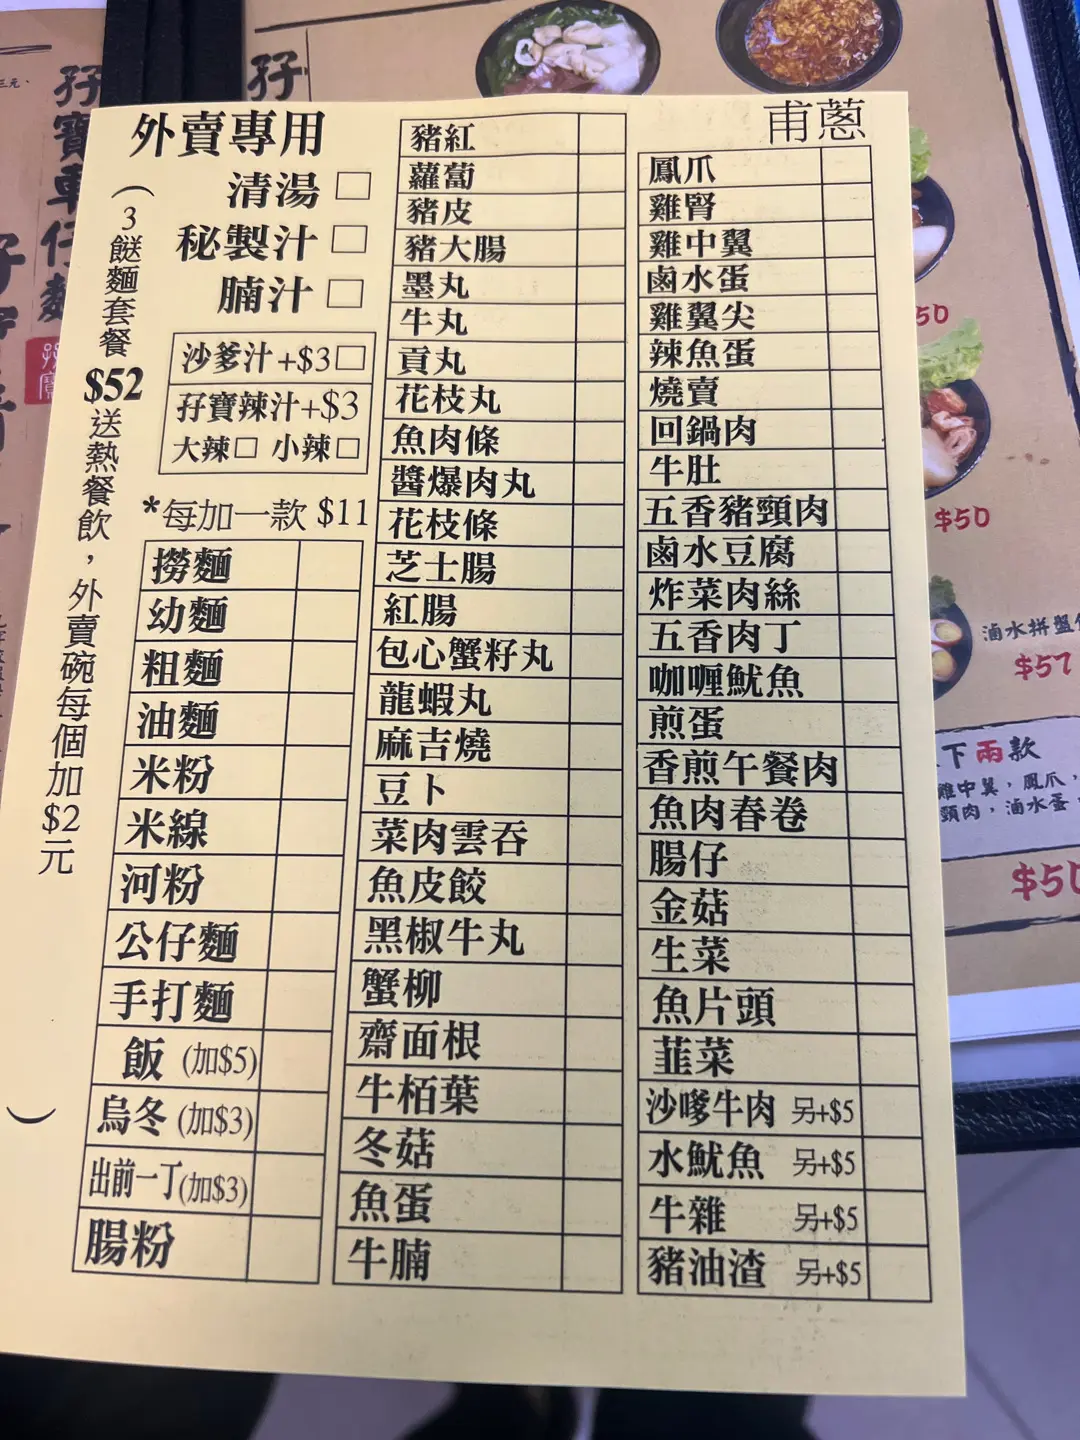 外賣專用
清湯 □
秘製汁 □
腩汁 □
沙爹汁+$3□
孖寶辣汁+$3
大辣□ 小辣□
*每加一款 $11
(3餸麵套餐$52送熱餐飲，外賣碗每個加$2元)
撈麵
幼麵
粗麵
油麵
米粉
米線
河粉
公仔麵
手打麵
飯 (加$5)
烏冬 (加$3)
出前一丁(加$3)
腸粉
豬紅
蘿蔔
豬皮
豬大腸
墨丸
牛丸
貢丸
花枝丸
魚肉條
醬爆肉丸
花枝條
芝士腸
紅腸
包心蟹籽丸
龍蝦丸
麻吉燒
豆卜
菜肉雲吞
魚皮餃
黑椒牛丸
蟹柳
齋面根
牛栢葉
冬菇
魚蛋
牛腩
甫蔥
鳳爪
雞腎
雞中翼
鹵水蛋
雞翼尖
辣魚蛋
燒賣
回鍋肉
牛肚
五香豬頸肉
鹵水豆腐
炸菜肉絲
五香肉丁
咖喱魷魚
煎蛋
香煎午餐肉
魚肉春卷
腸仔
金菇
生菜
魚片頭
韮菜
沙嗲牛肉 另+$5
水魷魚 另+$5
牛雜 另+$5
豬油渣 另+$5
孖寶車仔麵
孖
$50
滷水拼盤
$57
下兩款
雞中翼，鳳爪，
頸肉，滷水蛋
$50